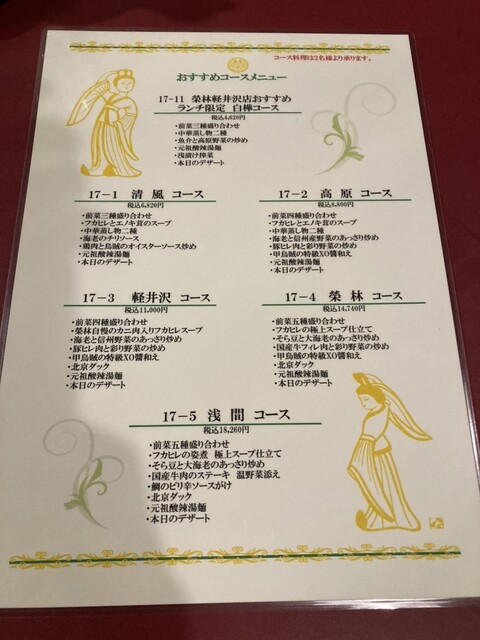 コース料理は2名様より承ります。
おすすめコースメニュー
17-11 榮林軽井沢店おすすめ
ランチ限定 白樺コース
税込4,620円
・前菜三種盛り合わせ
・中華蒸し物二種
・魚介と高原野菜の炒め
・元祖酸辣湯麺
・浅漬け搾菜
・本日のデザート
17-1 清風 コース
税込6,820円
・前菜三種盛り合わせ
・フカヒレとエノキ茸のスープ
・中華蒸し物二種
・海老のチリソース
・鶏肉と烏賊のオイスターソース炒め
・元祖酸辣湯麺
・本日のデザート
17-2 高原 コース
税込8,800円
・前菜四種盛り合わせ
・フカヒレとエノキ茸のスープ
・中華蒸し物二種
・海老と信州産野菜のあっさり炒め
・豚ヒレ肉と彩り野菜の炒め
・甲烏賊の特級XO醬和え
・元祖酸辣湯麺
・本日のデザート
17-3 軽井沢 コース
税込11,000円
・前菜四種盛り合わせ
・榮林自慢のカニ肉入りフカヒレスープ
・海老と信州野菜のあっさり炒め
・豚ヒレ肉と彩り野菜の炒め
・甲烏賊の特級XO醬和え
・北京ダック
・元祖酸辣湯麺
・本日のデザート
17-4 榮林 コース
税込14,740円
・前菜五種盛り合わせ
・フカヒレの極上スープ仕立て
・そら豆と大海老のあっさり炒め
・国産牛フィレ肉と彩り野菜の炒め
・甲烏賊の特級XO醬和え
・北京ダック
・元祖酸辣湯麺
・本日のデザート
17-5 浅間 コース
税込18,260円
・前菜五種盛り合わせ
・フカヒレの姿煮 極上スープ仕立て
・そら豆と大海老のあっさり炒め
・国産牛肉のステーキ 温野菜添え
・鯛のピリ辛ソースがけ
・北京ダック
・元祖酸辣湯麺
・本日のデザート